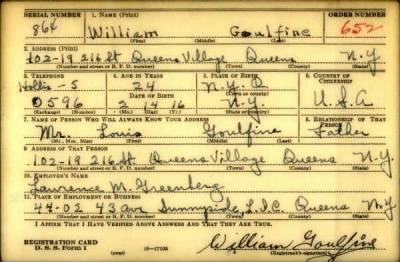 SERIAL NUMBER 1. NAME (Print) ORDER NUMBER
864 William Goulfine 652
(First) (Middle) (Last)
2. ADDRESS (Print)
102-19 216 St Queens Village Queens N.Y
(Number and street or R. F. D. number) (Town) (County) (State)
3. TELEPHONE 4. AGE IN YEARS 5. PLACE OF BIRTH 6. COUNTRY OF CITIZENSHIP
Hollis-5 24 N.Y.C
DATE OF BIRTH
0596 2 14 16 N.Y. U.S.A
(Exchange) (Number) (Mo.) (Day) (Yr.) (State or country)
7. NAME OF PERSON WHO WILL ALWAYS KNOW YOUR ADDRESS 8. RELATIONSHIP OF THAT PERSON
Mr. Louis Goulfine Father
(Mr., Mrs., Miss) (First) (Middle) (Last)
9. ADDRESS OF THAT PERSON
102-19 216 St Queens Village Queens N.Y.
(Number and street or R. F. D. number) (Town) (County) (State)
10. EMPLOYER'S NAME
Lawrence M. Greenberg
11. PLACE OF EMPLOYMENT OR BUSINESS
44-02 43 ave Sunnyside, L.I.C. Queens N.Y
(Number and street or R. F. D. number) (Town) (County) (State)
I AFFIRM THAT I HAVE VERIFIED ABOVE ANSWERS AND THAT THEY ARE TRUE.
REGISTRATION CARD
D. S. S. Form 1 16-17105 William Goulfine
(over) (Registrant's signature)